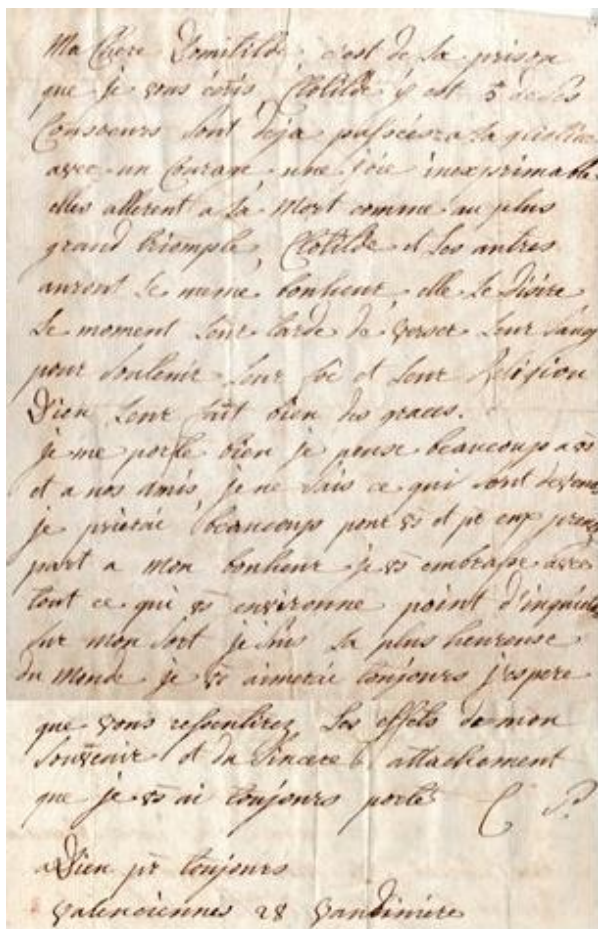 Ma Chere Domitilde c'est de la prison
que je vous écris, Clotilde y est 5 de ses
Consœurs sont deja passées a la
avec un Courage une joie inexprimable
elles allerent a la Mort comme au plus
grand triomple, Clotilde et les autres
auront le meme bonheur, elle le desire
le moment leur tarde de verser leur sang
pour soutenir leur foi et leur Religion
Dieu leur fait bien des graces.
je me porte bien je pense beaucoup a vs
et a nos amis, je ne sais ce qui sont devenu
je prierai beaucoup pour vs et pr eux prenez
part a mon bonheur je vs embrasse avec
tout ce qui vs environne point d'inquiet
sur mon sort je suis la plus heureuse
du Monde je vs aimerai toujours j'espere
que vous ressentirez les effets de mon
souvenir et du sincere attachement
que je vs ai toujours porté C P.
aDieu pr toujours
valenciennes 28 vandimiere